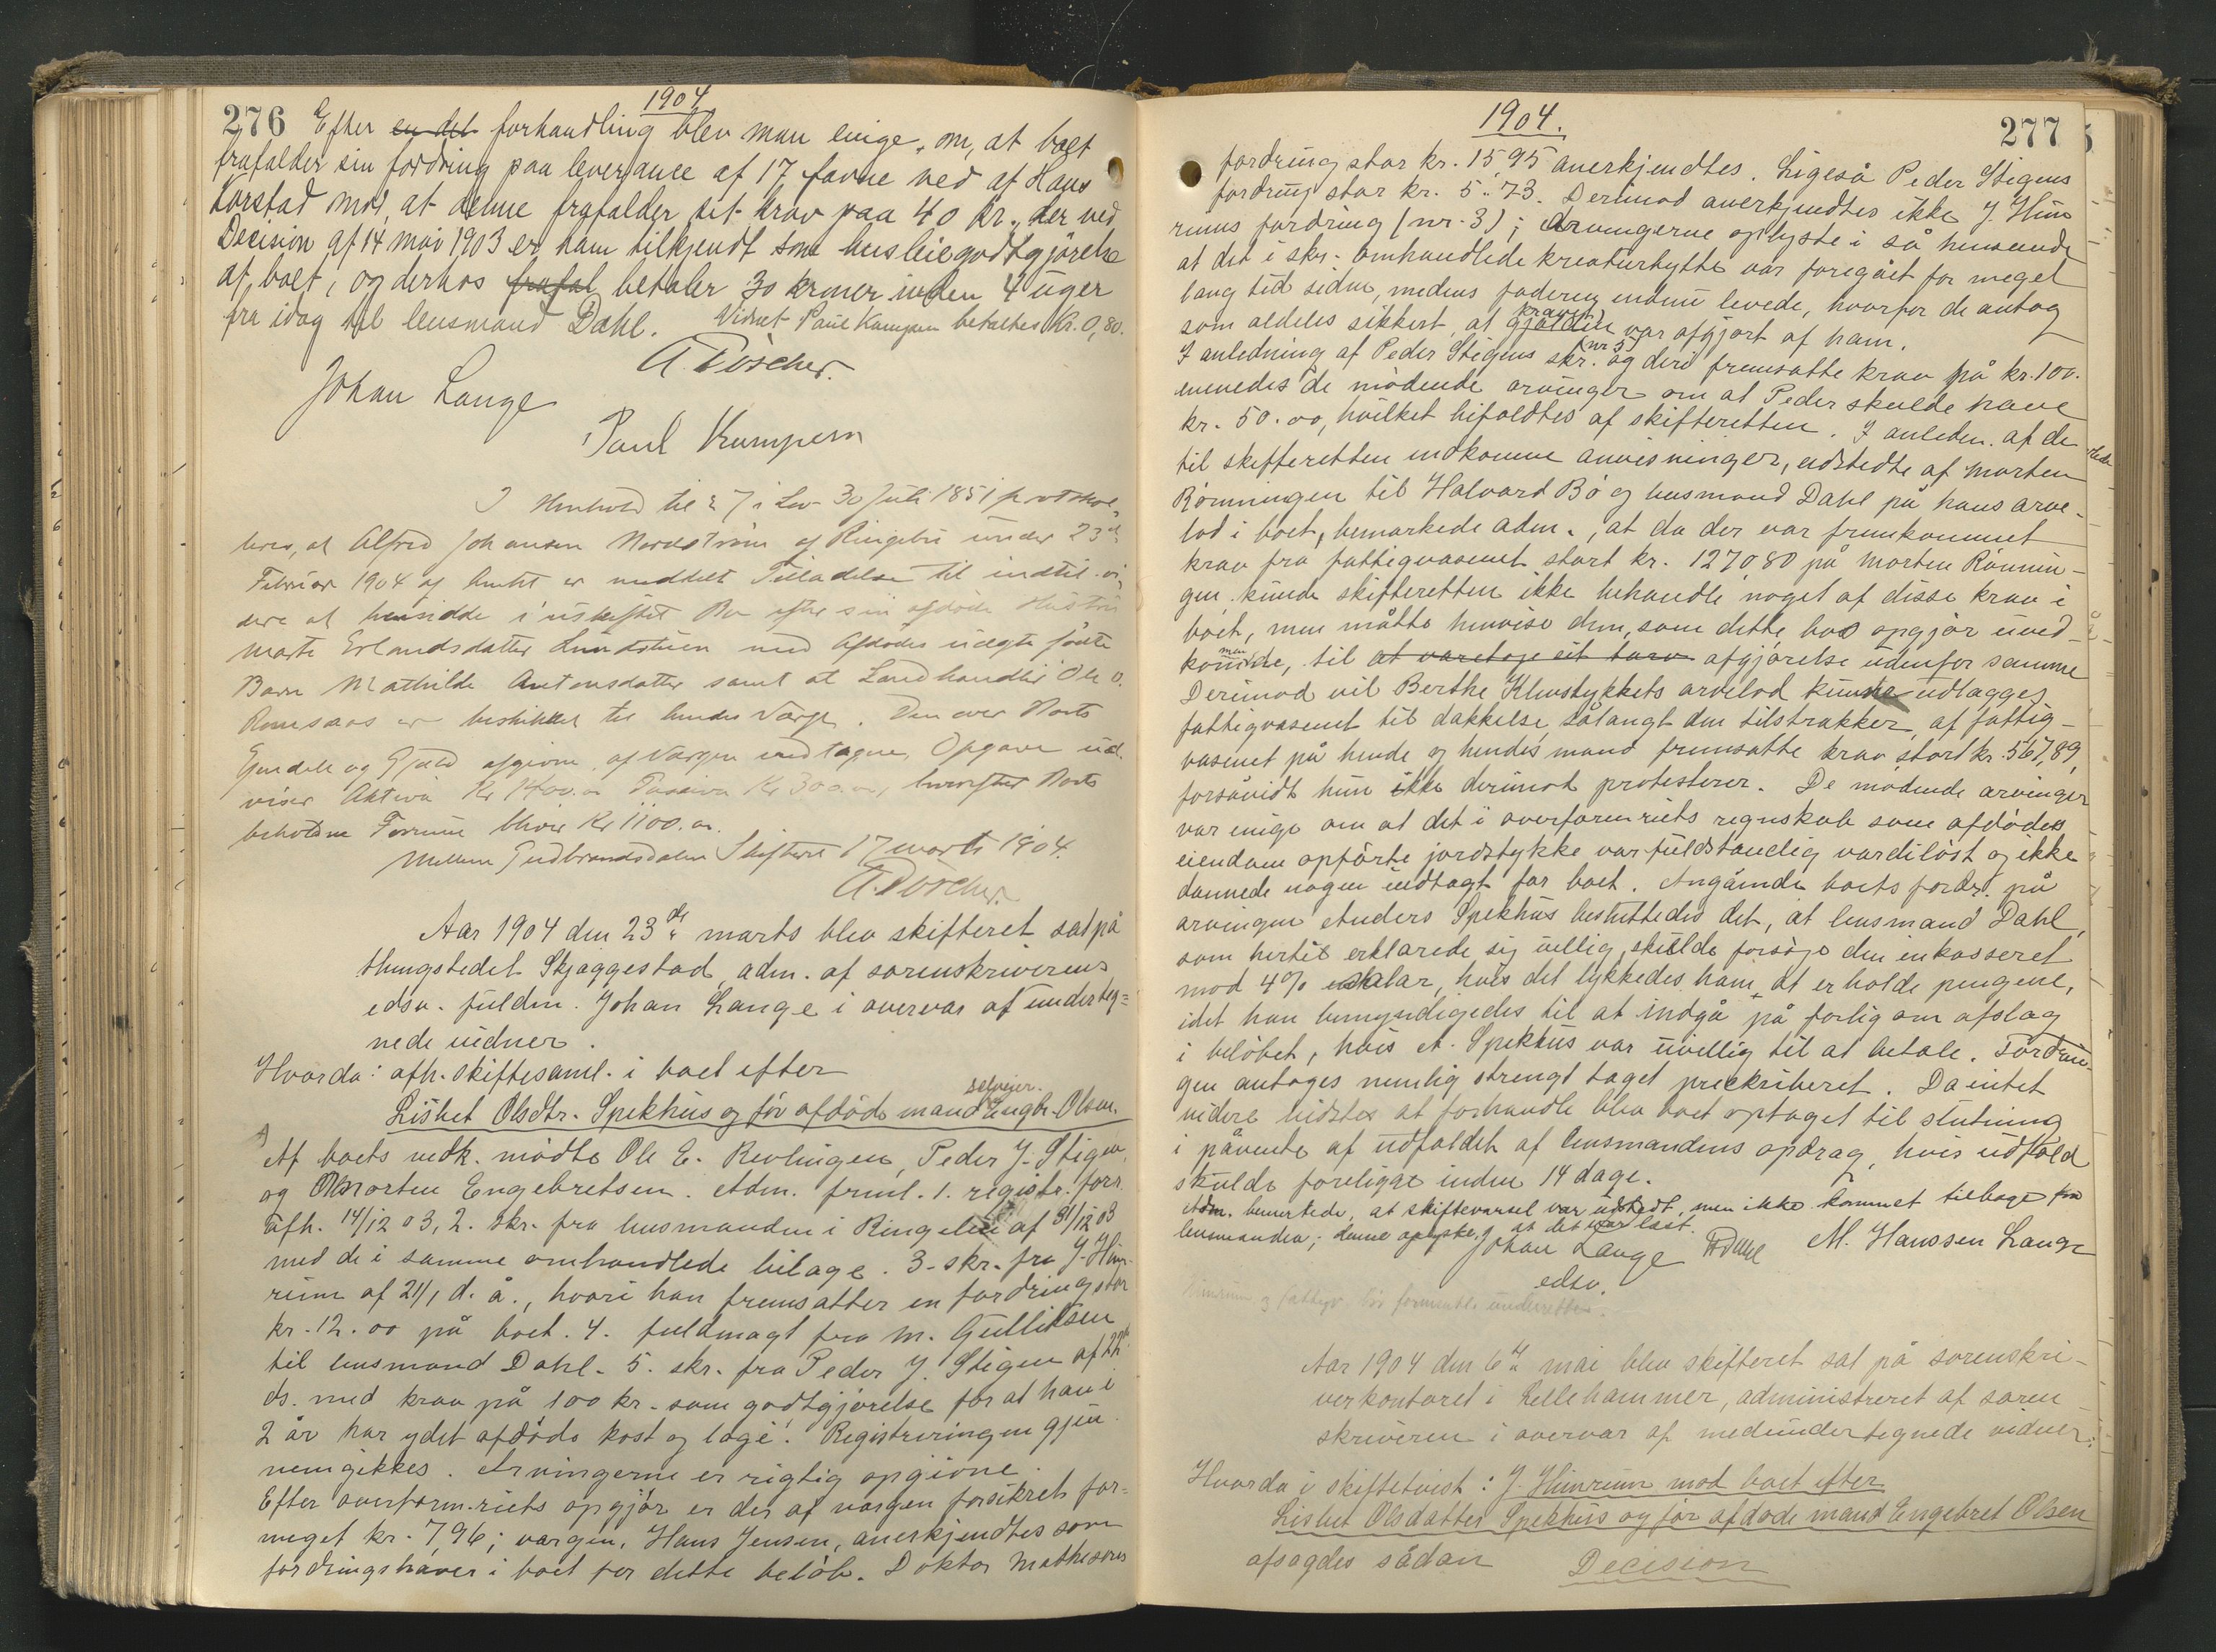 1904
276 Efter en del forhandling blev man enige om, at boet
frafalder sin fordring paa leverance af 17 favne ved af Hans
Korstad mod, at denne frafalder sit krav paa 40 kr., der ved
Decision af 14 mai 1903 er ham tilkjendt som husleiegodtgjörelse
af boet, og derhos frafal betaler 30 kroner inden 4 uger
fra idag til lensmand Dahl. Vidnet Paul Kumpen betaltes Kr. 0,80.
Johan Lange
Paul Kumpen
I Henhold til § 7 i Lov 30 Juli 1851 protokol-
leres, at Alfred Johansen Nordström af Ringebu under 23de
Februar 1904 af Amtet er meddelt Tilladelse til indtil vi-
dere at hensidde i uskiftet Bo efter sin afdöde Hustru
Marte Erlandsdatter Lundstuen med Afdödes uægte födte
Barn Mathilde Antonsdatter samt at Landhandler Ole O.
er beskikket til hendes Værge. Den over Boets
Eiendele og Gjæld afgivne, af Værgen vedtagne, Opgave ud-
viser Aktiva Kr 1400.00 Passiva Kr 300.00, hvorefter Boets
beholdne Formue bliver Kr 1100.00.
Mellem Gudbrandsdalens Skifteret 17 marts 1904.
Aar 1904 den 23de marts blev skifteret sat på
thingstedet Skjæggestad, adm. af sorenskriverens
edsv. fuldm. Johan Lange i overvær af underteg-
nede vidner.
Hvorda: afh. skiftesaml. i boet efter
selveier.
Lisbet Olsdtr. Spekhus og för afdöde mand Engbr. Olsen.
Af boets vedk. mödte Ole E. Revlingen, Peder J. Stigen,
og Morten Engebretsen. Adm. freml. 1. registr. forr.
afh. 14/12 03, 2. skr. fra lensmanden i Ringebu af 31/12 03
med de i samme omhandlede bilage. 3. skr. fra J. Him-
rum af 21/1 d. å., hvori han fremsætter en fordring stor
kr. 12.00 på boet. 4. fuldmagt fra M. Gullik­sen
til lensmand Dahl. 5. skr. fra Peder J. Stigen af 22
ds. med krav på 100 kr. som godtgjörelse for at han i
2 år har ydet afdöde kost og logi. Registreringen gjen-
nemgikkes. Arvingerne er rigtig opgivne.
Efter overform.riets opgjör er der af værgen forsikret for-
meget kr. 7,96; værgen, Hans Jensen, anerkjendtes som
fordringshaver i boet for dette belöb. Doktor Mathesons
1904.
277
fordring stor kr. 15 95 anerkjendtes. Ligeså Peder Stigens
fordring stor kr. 5.73. Derimod anerkjendtes ikke J. Him
rums fordring (nr. 3); Arvingerne oplyste i så henseende
at det i skr. omhandlede kreaturbytte var foregået for meget
lang tid siden, medens faderen endnu levede, hvorfor de antog
som aldeles sikkert, at gjælden var afgjort af ham.
kravet
I anledning af Peder Stigens skr. (nr 5) og deri fremsatte krav på kr. 100.
enedes de mödende arvinger om at Peder skulde have
kr. 50.00, hvilket bifaldtes af skifteretten. I anledn. af de
til skifteretten indkomne anvisninger, udstedte af Morten
Rönningen til Halvard Bö og lensmand Dahl på hans arve-
lod i boet, bemærkede adm., at da der var fremkommet
krav fra fattigvæsenet stort kr. 1270 80 på Morten Rönnin-
gen kunde skifteretten ikke behandle noget af disse krav i
boet, men måtte henvise dem, som dette bos opgjör uved-
kommende, til at varetage sit tarv afgjörelse udenfor samme
Derimod vil Berthe Klevstykkets arvelod kunne udlægges
fattigvæsenet til dækkelse, sålangt den tilstrækker, af fattig-
væsenet på hende og hendes mand fremsatte krav stort kr. 567,89,
forsåvidt hun ikke derimod protesterer. De mödende arvinger
var enige om at det i overformriets regnskab som afdödes
eiendom opförte jordstykke var fuldstændig værdilöst og ikke
dannede nogen indtægt for boet. Angående boets fordr. på
arvingen Anders Spekhus besluttedes det, at lensmand Dahl,
som hertil erklærede sig villig, skulde forsöge den inkasseret
mod 4% salær, hvis det lykkedes ham, at erholde pengene,
idet han bemyndigedes til at indgå på forlig om afslag
i belöbet, hvis A. Spekhus var uvillig til at betale. Fordrin-
gen antages nemlig strengt taget preskriberet. Da intet
videre vidstes at forhandle blev boet optaget til slutning
i påvente af udfaldet af lensmandens opdrag, hvis udfald
skulde foreligge inden 14 dage.
Adm. bemærkede, at skiftevarsel var udstedt, men ikke kommet tilbage fra
lensmanden; denne oplyste, at det var læst.
Johan Lange Dahl M. Hanssen Lange
edsv.
Aar 1904 den 6te mai blev skifteret sat på sorenskri-
verkontoret i Lillehammer, administreret af soren
skriveren i overvær af medundertegnede vidner:
Hvorda i skiftetvist: J. Himrum mod boet efter
Lisbet Olsdatter Spekhus og för afdöde mand Engebret Olsen
afsagdes sådan Decision